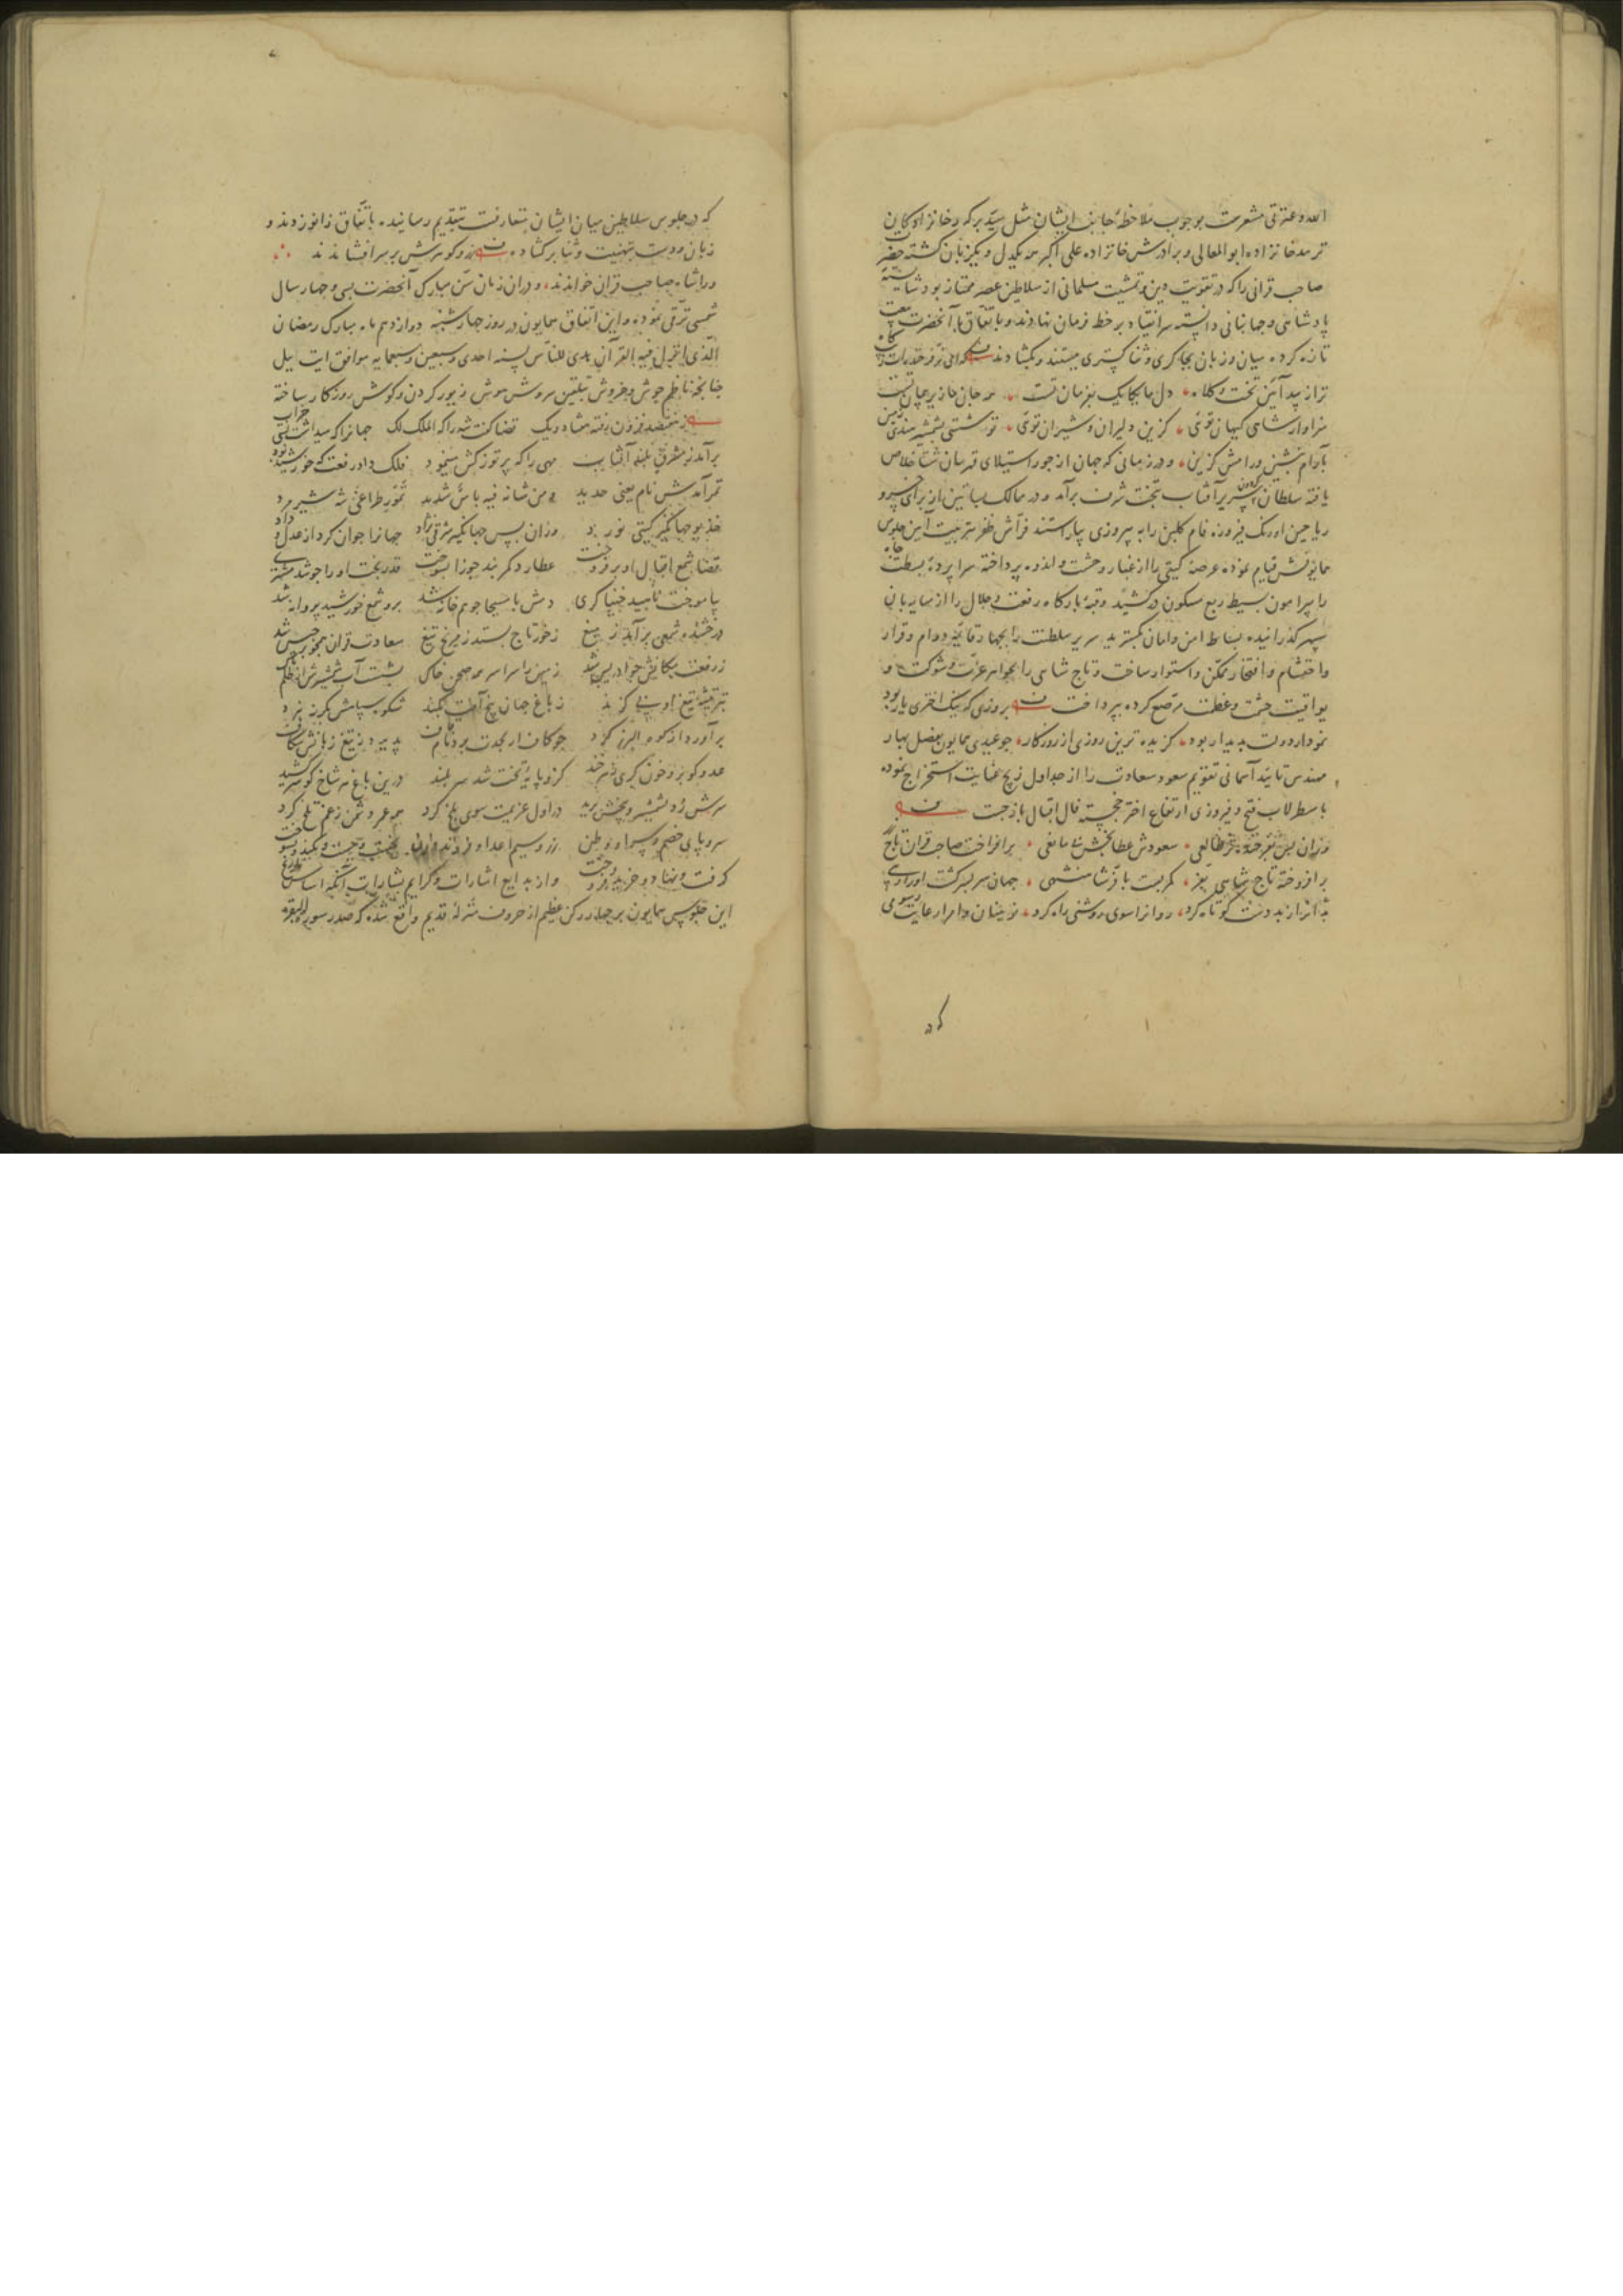 الله و عترتی مشعرست بموجب ملاحظهٔ جانب ایشان مثل سید برکه و خانزادکان
ترمد خانزاده ابو المعالی و برادرش خانزاده علی اکبر همه یکدل و یکزبان کشته حضرت
صاحب قرانی را که در تقویت دین و تمشیت مسلمانی از سلاطین عصر ممتاز بود شایستهٔ
پادشاهی و جهانبانی دانسته سر انقیاد بر خط فرمان نهادند و باتفاق با آنحضرت بیعت
تازه کرده میان و زبان بچاکری و ثناکستری ببستند و بکشادند که ای نوفرخنده
ترا زیبد آیین تخت و کلاه دل ما یکایک بفرمان تست همه جان ما زیر پیمان تست
سزاوار شاهی کیهان توئی کزین دلیران و شیران توئی تو شستی بشمشیر هندی زمین
بآرام بنشین و رامش کزین و در زمانی که جهان از جور استیلای قهرمان شتا خلاص
یافته سلطان سپهر سریر آفتاب بتخت شرف برآمد و در ممالک بساتین از برای خسرو
ریاحین اورنک فیروزه فام کلبن را به پیروزی بیاراستند فرّاش ظفر بترتیب آیین جلوس
همایونش قیام نموده عرصهٔ کیتی را از غبار وحشت و اندوه پرداخته سراپردهٔ بسطت جاه
را پیرامون بسیط ربع مسکون درکشید و قبهٔ بارکاه رفعت و جلال را از سایه بان
سپهر کذرانیده بساط امن و امان بکسترید سریر سلطنت را بچهار قایمهٔ دوام و قرار
و احتشام و افتخار ممکن و استوار ساخت و تاج شاهی را بجواهر عزت و شوکت و
یواقیت حشمت و عظمت مرصع کرده بپرداخت بروزی که نیک اختری یار بود
نمودار دولت پدیدار بود کزیده ترین روزی از روزکار چو عیدی همایون بفصل بهار
مهندس تایید آسمانی تقویم سعود سعادت را از جداول زیج عنایت استخراج نموده
باسطرلاب فتح و فیروزی ارتفاع اختر خجسته فال اقبال باز جست
وزان پس بفرخنده‌تر طالعی سعودش عطابخش نا مانعی برافراخت صاحب قران تاج
برافروخته تاج شاهی بفر کمر بست با فر شاهنشهی جهان سربسر کشت او را رهی
بد انرا ز بد دست کوتاه کرد روانرا سوی روشنی راه کرد نوینان و امرا رعایت رسومی
که در
که در جلوس سلاطین میان ایشان متعارفست بتقدیم رسانیده باتفاق زانو زدند و
زبان و دست بتهنیت و ثنا برکشاده زر و کوهرش بر سر افشاندند
ورا شاه صاحب قران خواندند و در آن زمان سن مبارک آنحضرت بسی و چهار سال
شمسی ترقی نموده و این اتفاق همایون در روز چهارشنبه دوازدهم ماه مبارک رمضان
الذی انزل فیه القرآن هدی للناس لسنه احدی و سبعین و سبعمایه موافق ایت ییل
چنانچه ناظم جوش و خروش بتلقین سروش هوش زیور کردن و کوش روزکار ساخته
ز هفتصد فزون رفته هفتاد و یک قضا کفت شه را که الملک لک جهانرا که میداشت کیتی خراب
برآمد ز مشرق بلند آفتاب مهی را که پرتو زکش مینمود فلک داد رفعت که خورشید بود
تمر آمدش نام یعنی حدید و من شانه فیه باس شدید
خدیو جهانکیر کیتی نورد وزان پس جهانکیر شرقی نژاد جهانرا جوان کرد از عدل و داد
قضا شمع اقبال او برفروخت عطارد کمربند جوزا بسوخت قدر بخت او را چو شد مشتری
بیاموخت ناهید خنیاکری دمش با مسیحا چو هم خانه شد برو شمع خورشید پروانه شد
درخشنده شمعی برآمد ز میغ ز خور تاج بستد ز مریخ تیغ سعادت قران
ز رفعت مکانش چو ادریس شد زمین را سراسر همه صحن خاک بشست آب شمشیرش از ظلم پاک
زباغ جهان بیخ آفت بکند شکوه سپاهش بکرز نبرد
برآورد از کوه البرز کرد
کزو پایهٔ تخت شد سربلند درین باغ هر شاخ کو سرکشید
سرش زد بشمشیر و بیخش برید در اول عزیمت سوی بلخ کرد همه عمر دشمن ز غم تلخ کرد
سر و پای خصم و سرا و وطن
کرفت و نهاد و خرید و فروخت و از بدایع اشارات و کرایم بشارات آنکه اساس تاریخ
این جلوس همایون بر چهار رکن عظیم از حروف منزلهٔ قدیم واقع شده که صدر سوره البقره